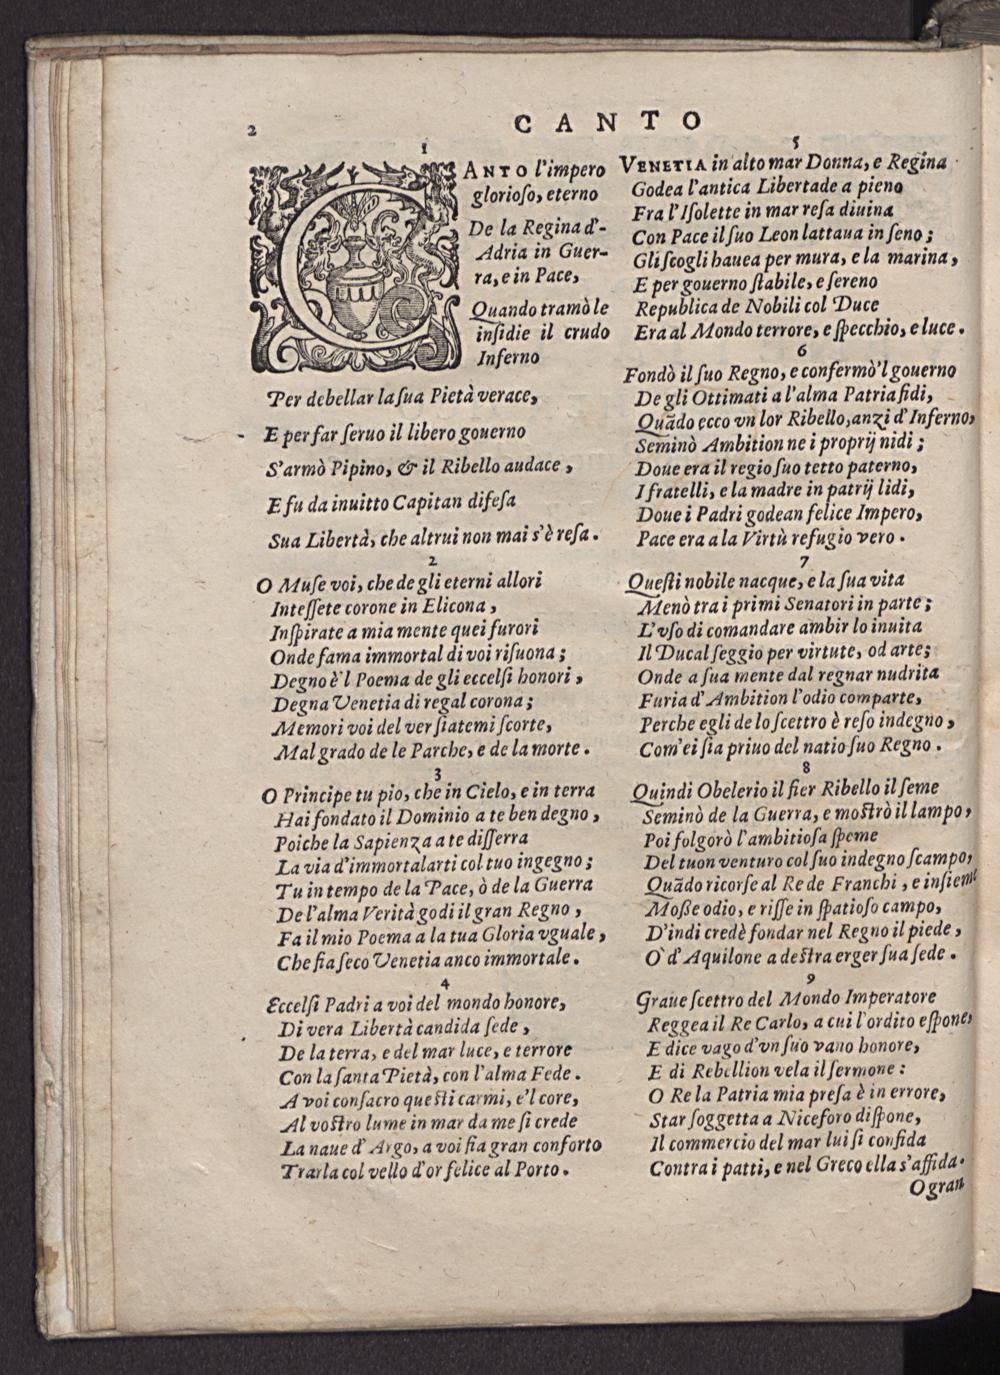 2
CANTO
1
CANTO l'impero
glorioſo, eterno
De la Regina d'-
Adria in Guer-
ra, e in Pace,
Quando tramò le
inſidie il crudo
Inferno
Per debellar la ſua Pietà verace,
E per far ſeruo il libero gouerno
S'armò Pipino, & il Ribello audace,
E fu da inuitto Capitan difeſa
Sua Libertà, che altrui non mai s'è reſa.
2
O Muſe voi, che de gli eterni allori
Inteſſete corone in Elicona,
Inſpirate a mia mente quei furori
Onde fama immortal di voi riſuona;
Degno è'l Poema de gli eccelſi honori,
Degna Venetia di regal corona;
Memori voi del ver ſiatemi ſcorte,
Mal grado de le Parche, e de la morte.
3
O Principe tu pio, che in Cielo, e in terra
Hai fondato il Dominio a te ben degno,
Poiche la Sapienza a te diſſerra
La via d'immortalarti col tuo ingegno;
Tu in tempo de la Pace, ò de la Guerra
De l'alma Verità godi il gran Regno,
Fa il mio Poema a la tua Gloria vguale,
Che ſia ſeco Venetia anco immortale.
4
Eccelſi Padri a voi del mondo honore,
Di vera Libertà candida ſede,
De la terra, e del mar luce, e terrore
Con la ſanta Pietà, con l'alma Fede.
A voi conſacro queſti carmi, e'l core,
Al voſtro lume in mar da me ſi crede
La naue d' Argo, a voi fia gran conforto
Trarla col vello d'or felice al Porto.
5
VENETIA in alto mar Donna, e Regina
Godea l'antica Libertade a pieno
Fra l'Iſolette in mar reſa diuina
Con Pace il ſuo Leon lattaua in ſeno;
Gli ſcogli hauea per mura, e la marina,
E per gouerno ſtabile, e ſereno
Republica de Nobili col Duce
Era al Mondo terrore, e ſpecchio, e luce.
6
Fondò il ſuo Regno, e confermò'l gouerno
De gli Ottimati a l'alma Patria fidi,
Quãdo ecco vn lor Ribello, anzi d' Inferno,
Seminò Ambition ne i proprij nidi;
Doue era il regio ſuo tetto paterno,
I fratelli, e la madre in patrij lidi,
Doue i Padri godean felice Impero,
Pace era a la Virtù refugio vero.
7
Queſti nobile nacque, e la ſua vita
Menò tra i primi Senatori in parte;
L'vſo di comandare ambir lo inuita
Il Ducal ſeggio per virtute, od arte;
Onde a ſua mente dal regnar nudrita
Furia d' Ambition l'odio comparte,
Perche egli de lo ſcettro è reſo indegno,
Com'ei ſia priuo del natio ſuo Regno.
8
Quindi Obelerio il fier Ribello il ſeme
Seminò de la Guerra, e moſtrò il lampo,
Poi folgorò l'ambitioſa ſpeme
Del tuon venturo col ſuo indegno ſcampo,
Quãdo ricorſe al Re de Franchi, e inſieme
Moße odio, e riſſe in ſpatioſo campo,
D'indi credè fondar nel Regno il piede,
O d' Aquilone a deſtra erger ſua ſede.
9
Graue ſcettro del Mondo Imperatore
Reggea il Re Carlo, a cui l'ordito eſpone,
E dice vago d'vn ſuo vano honore,
E di Rebellion vela il ſermone:
O Re la Patria mia preſa è in errore,
Star ſoggetta a Niceforo diſpone,
Il commercio del mar lui ſi confida
Contra i patti, e nel Greco ella s'affida.
O gran